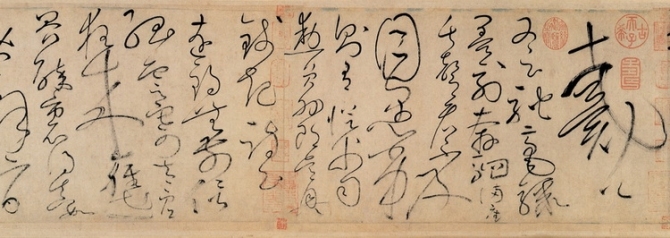 戴公
又云馳毫驟
墨列奔駟滿座
失聲看不及
目愚劣
則有從父司
勳員外郎吳興
錢起詩云
遠錫無前侶
孤雲寄太虛
狂來輕世
界醉裏得真如